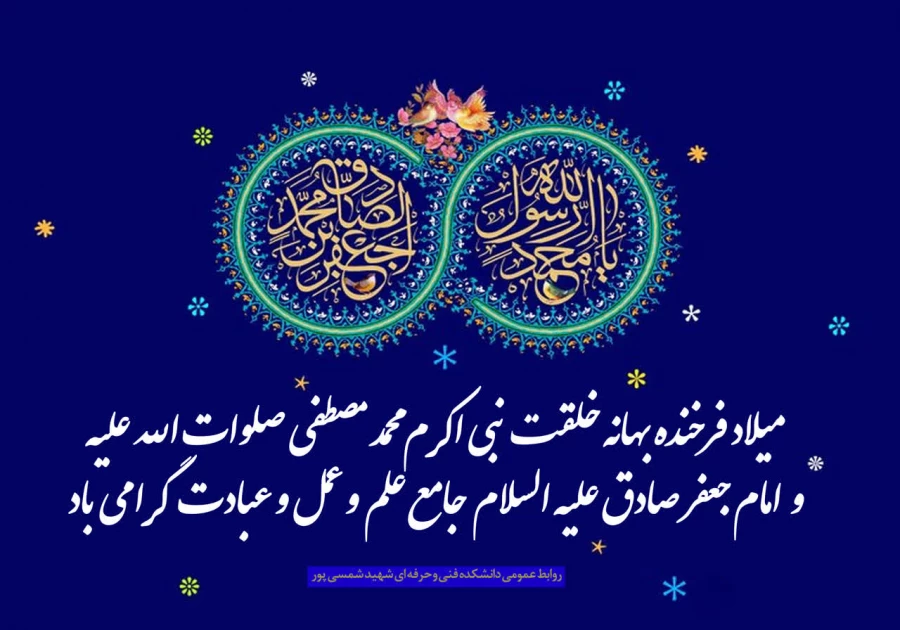 یا محمد رسول الله
جعفر بن محمد الصادق
میلاد فرخنده بهانه خلقت نبی اکرم محمد مصطفی صلوات الله علیه
و امام جعفر صادق علیه السلام جامع علم و عمل و عبادت گرامی باد
روابط عمومی دانشکده فنی و حرفه ای شهید شمسی پور